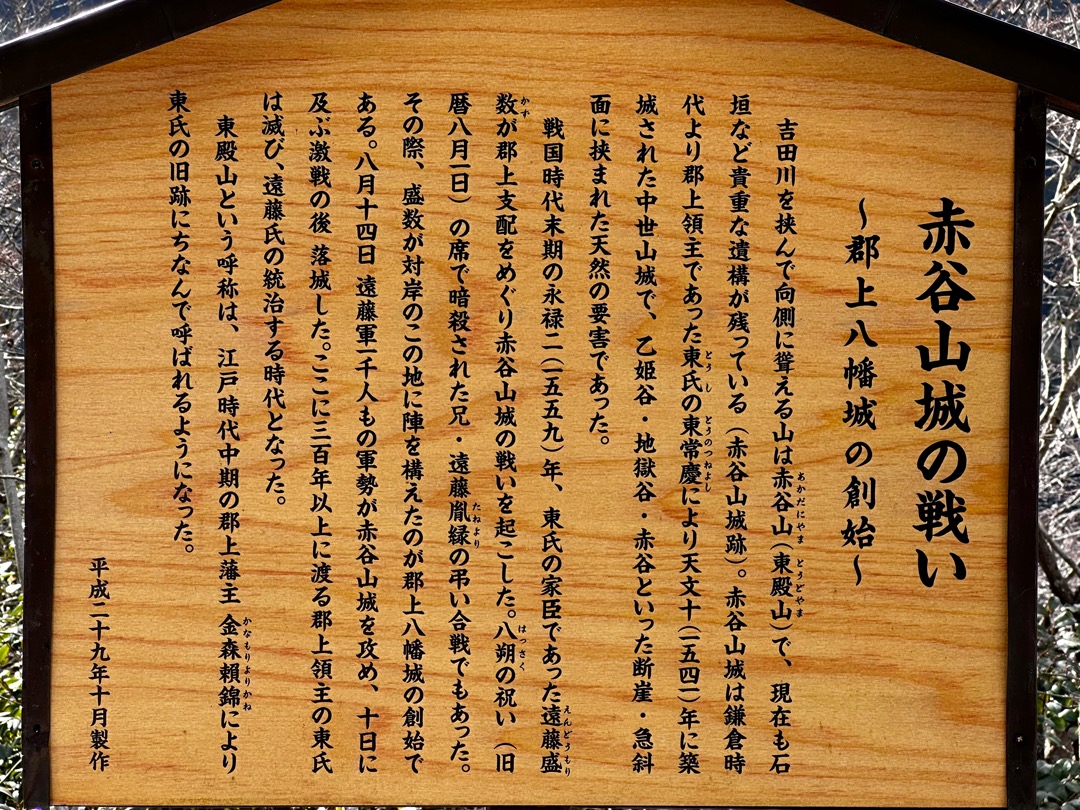 赤谷山城の戦い
～郡上八幡城の創始～
吉田川を挟んで向側に聳える山は赤谷山（東殿山）で、現在も石
あかだにやま とうどやま
垣など貴重な遺構が残っている（赤谷山城跡）。赤谷山城は鎌倉時
代より郡上領主であった東氏の東常慶により天文十（一五四一）年に築
とうし とうのつねよし
城された中世山城で、乙姫谷・地獄谷・赤谷といった断崖・急斜
面に挟まれた天然の要害であった。
戦国時代末期の永禄二（一五五九）年、東氏の家臣であった遠藤盛
えんどうもり
数が郡上支配をめぐり赤谷山城の戦いを起こした。八朔の祝い（旧
かず はっさく
暦八月一日）の席で暗殺された兄・遠藤胤縁の弔い合戦でもあった。
たねより
その際、盛数が対岸のこの地に陣を構えたのが郡上八幡城の創始で
ある。八月十四日 遠藤軍一千人もの軍勢が赤谷山城を攻め、十日に
及ぶ激戦の後 落城した。ここに三百年以上に渡る郡上領主の東氏
は滅び、遠藤氏の統治する時代となった。
東殿山という呼称は、江戸時代中期の郡上藩主 金森頼錦により
かなもりよりかね
東氏の旧跡にちなんで呼ばれるようになった。
平成二十九年十月製作